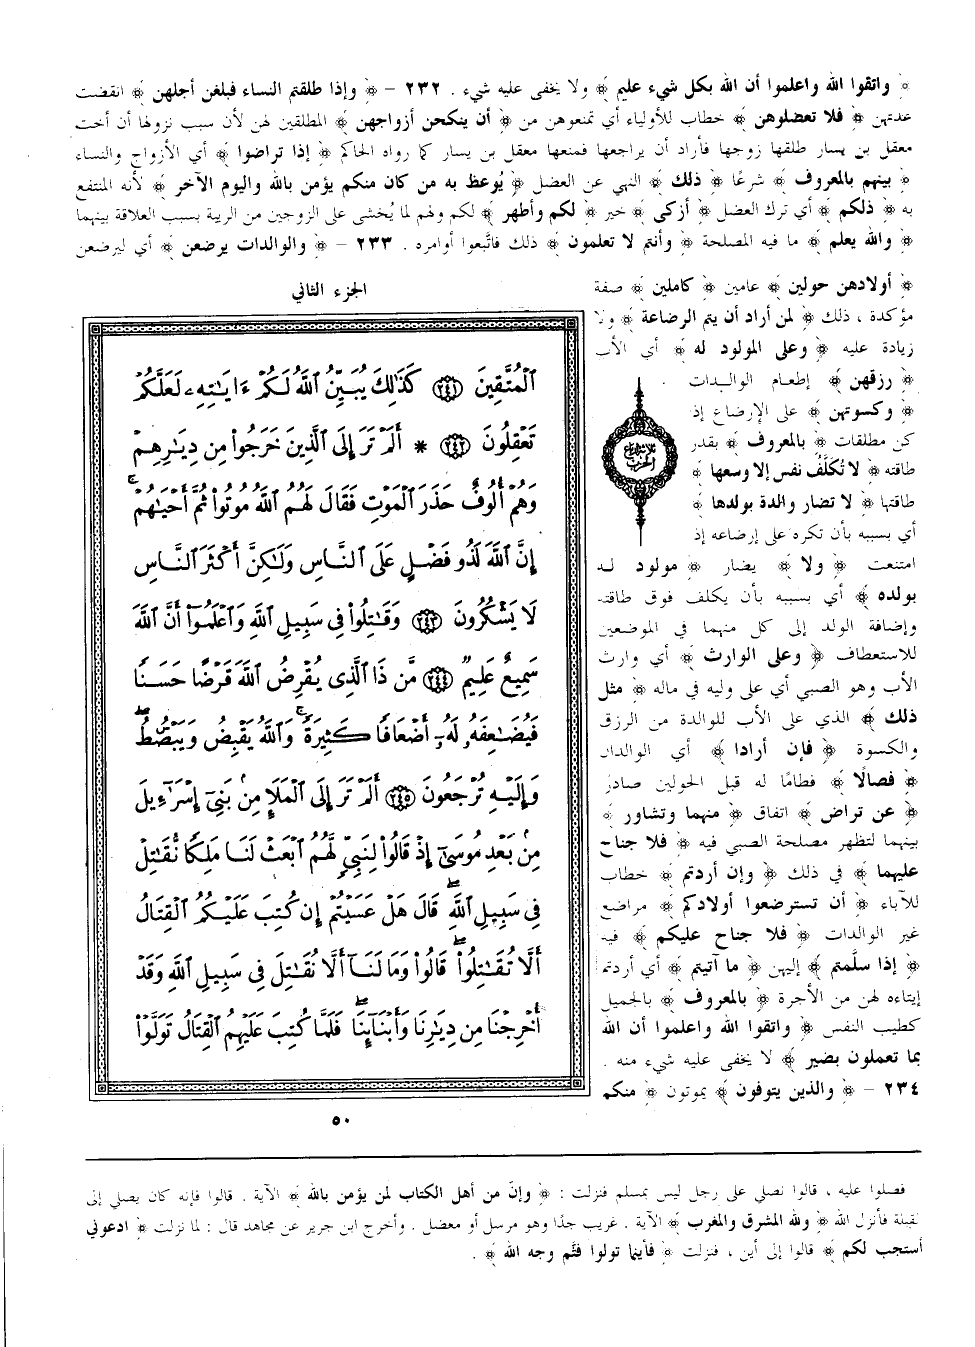 ﴿ واتقوا الله واعلموا أن الله بكل شيء عليم ﴾ ولا يخفى عليه شيء . ٢٣٢ – ﴿ وإذا طلقتم النساء فبلغن أجلهن ﴾ انقضت
عدتهن ﴿ فلا تعضلوهن ﴾ خطاب للأولياء أي تمنعوهن من ﴿ أن ينكحن أزواجهن ﴾ المطلقين لهن لأن سبب نزولها أن أخت
معقل بن يسار طلقها زوجها فأراد أن يراجعها فمنعها معقل بن يسار كما رواه الحاكم ﴿ إذا تراضوا ﴾ أي الأزواج والنساء
﴿ بينهم بالمعروف ﴾ شرعًا ﴿ ذلك ﴾ النهي عن العضل ﴿ يُوعظ به من كان منكم يؤمن بالله واليوم الآخر ﴾ لأنه المنتفع
به ﴿ ذلكم ﴾ أي ترك العضل ﴿ أزكى ﴾ خير ﴿ لكم وأطهر ﴾ لكم ولهم لما يُخشى على الزوجين من الريبة بسبب العلاقة بينهما
﴿ والله يعلم ﴾ ما فيه المصلحة ﴿ وأنتم لا تعلمون ﴾ ذلك فاتَّبعوا أوامره . ٢٣٣ – ﴿ والوالدات يرضعن ﴾ أي ليرضعن
﴿ أولادهن حولين ﴾ عامين ﴿ كاملين ﴾ صفة
مؤكدة ، ذلك ﴿ لمن أراد أن يتم الرضاعة ﴾ ولا
زيادة عليه ﴿ وعلى المولود له ﴾ أي الأب
﴿ رزقهن ﴾ إطعام الوالدات
﴿ وكسوتهن ﴾ على الإرضاع إذ
كن مطلقات ﴿ بالمعروف ﴾ بقدر
طاقته ﴿ لا تُكَلَّفُ نفس إلا وسعها ﴾
طاقتها ﴿ لا تضار والدة بولدها ﴾
أي بسببه بأن تكره على إرضاعه إذ
امتنعت ﴿ ولا ﴾ يضار ﴿ مولود له
بولده ﴾ أي بسببه بأن يكلف فوق طاقته
وإضافة الولد إلى كل منهما في الموضعين
للاستعطاف ﴿ وعلى الوارث ﴾ أي وارث
الأب وهو الصبي أي على وليه في ماله ﴿ مثل
ذلك ﴾ الذي على الأب للوالدة من الرزق
والكسوة ﴿ فإن أرادا ﴾ أي الوالدان
﴿ فصالًا ﴾ فطامًا له قبل الحولين صادرً
﴿ عن تراض ﴾ اتفاق ﴿ منهما وتشاور ﴾
بينهما لتظهر مصلحة الصبي فيه ﴿ فلا جناح
عليهما ﴾ في ذلك ﴿ وإن أردتم ﴾ خطاب
للآباء ﴿ أن تسترضعوا أولادكم ﴾ مراضع
غير الوالدات ﴿ فلا جناح عليكم ﴾ فيه
﴿ إذا سلَّمتم ﴾ إليهن ﴿ ما آتيتم ﴾ أي أردتم
إيتاءه لهن من الأجرة ﴿ بالمعروف ﴾ بالجميل
كطيب النفس ﴿ واتقوا الله واعلموا أن الله
بما تعملون بصير ﴾ لا يخفى عليه شيء منه .
٢٣٤ – ﴿ والذين يتوفون ﴾ يموتون ﴿ منكم
الجزء الثاني
ٱلْمُتَّقِينَ ٢٤١ كَذَٰلِكَ يُبَيِّنُ ٱللَّهُ لَكُمْ ءَايَٰتِهِۦ لَعَلَّكُمْ
تَعْقِلُونَ ٢٤٢ * أَلَمْ تَرَ إِلَى ٱلَّذِينَ خَرَجُوا۟ مِن دِيَٰرِهِمْ
وَهُمْ أُلُوفٌ حَذَرَ ٱلْمَوْتِ فَقَالَ لَهُمُ ٱللَّهُ مُوتُوا۟ ثُمَّ أَحْيَٰهُمْ ۚ
إِنَّ ٱللَّهَ لَذُو فَضْلٍ عَلَى ٱلنَّاسِ وَلَٰكِنَّ أَكْثَرَ ٱلنَّاسِ
لَا يَشْكُرُونَ ٢٤٣ وَقَٰتِلُوا۟ فِى سَبِيلِ ٱللَّهِ وَٱعْلَمُوٓا۟ أَنَّ ٱللَّهَ
سَمِيعٌ عَلِيمٌ ٢٤٤ مَّن ذَا ٱلَّذِى يُقْرِضُ ٱللَّهَ قَرْضًا حَسَنًا
فَيُضَٰعِفَهُۥ لَهُۥٓ أَضْعَافًا كَثِيرَةً ۚ وَٱللَّهُ يَقْبِضُ وَيَبْصُۜطُ
وَإِلَيْهِ تُرْجَعُونَ ٢٤٥ أَلَمْ تَرَ إِلَى ٱلْمَلَإِ مِنۢ بَنِىٓ إِسْرَٰٓءِيلَ
مِنۢ بَعْدِ مُوسَىٰٓ إِذْ قَالُوا۟ لِنَبِىٍّ لَّهُمُ ٱبْعَثْ لَنَا مَلِكًا نُّقَٰتِلْ
فِى سَبِيلِ ٱللَّهِ ۖ قَالَ هَلْ عَسَيْتُمْ إِن كُتِبَ عَلَيْكُمُ ٱلْقِتَالُ
أَلَّا تُقَٰتِلُوا۟ ۖ قَالُوا۟ وَمَا لَنَآ أَلَّا نُقَٰتِلَ فِى سَبِيلِ ٱللَّهِ وَقَدْ
أُخْرِجْنَا مِن دِيَٰرِنَا وَأَبْنَآئِنَا ۖ فَلَمَّا كُتِبَ عَلَيْهِمُ ٱلْقِتَالُ تَوَلَّوْا۟
٥٠
فصلوا عليه ، قالوا نصلي على رجل ليس بمسلم فنزلت : ﴿ وإنّ من أهل الكتاب لمن يؤمن بالله ﴾ الآية . قالوا فإنه كان يصلي إلى
لقبلة فأنزل الله ﴿ ولله المشرق والمغرب ﴾ الآية . غريب جدًا وهو مرسل أو معضل . وأخرج ابن جرير عن مجاهد قال : لما نزلت ﴿ ادعوني
أستجب لكم ﴾ قالوا إلى أين ، فنزلت ﴿ فأينما تولوا فثَّم وجه الله ﴾ .